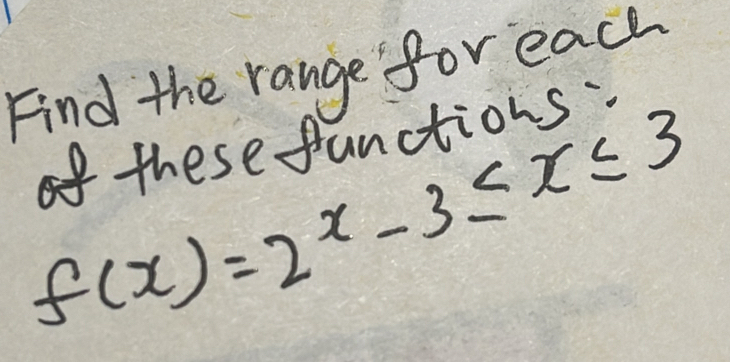 Find the range for each
of these functions:
f(x) = 2^x - 3 ≤ x ≤ 3